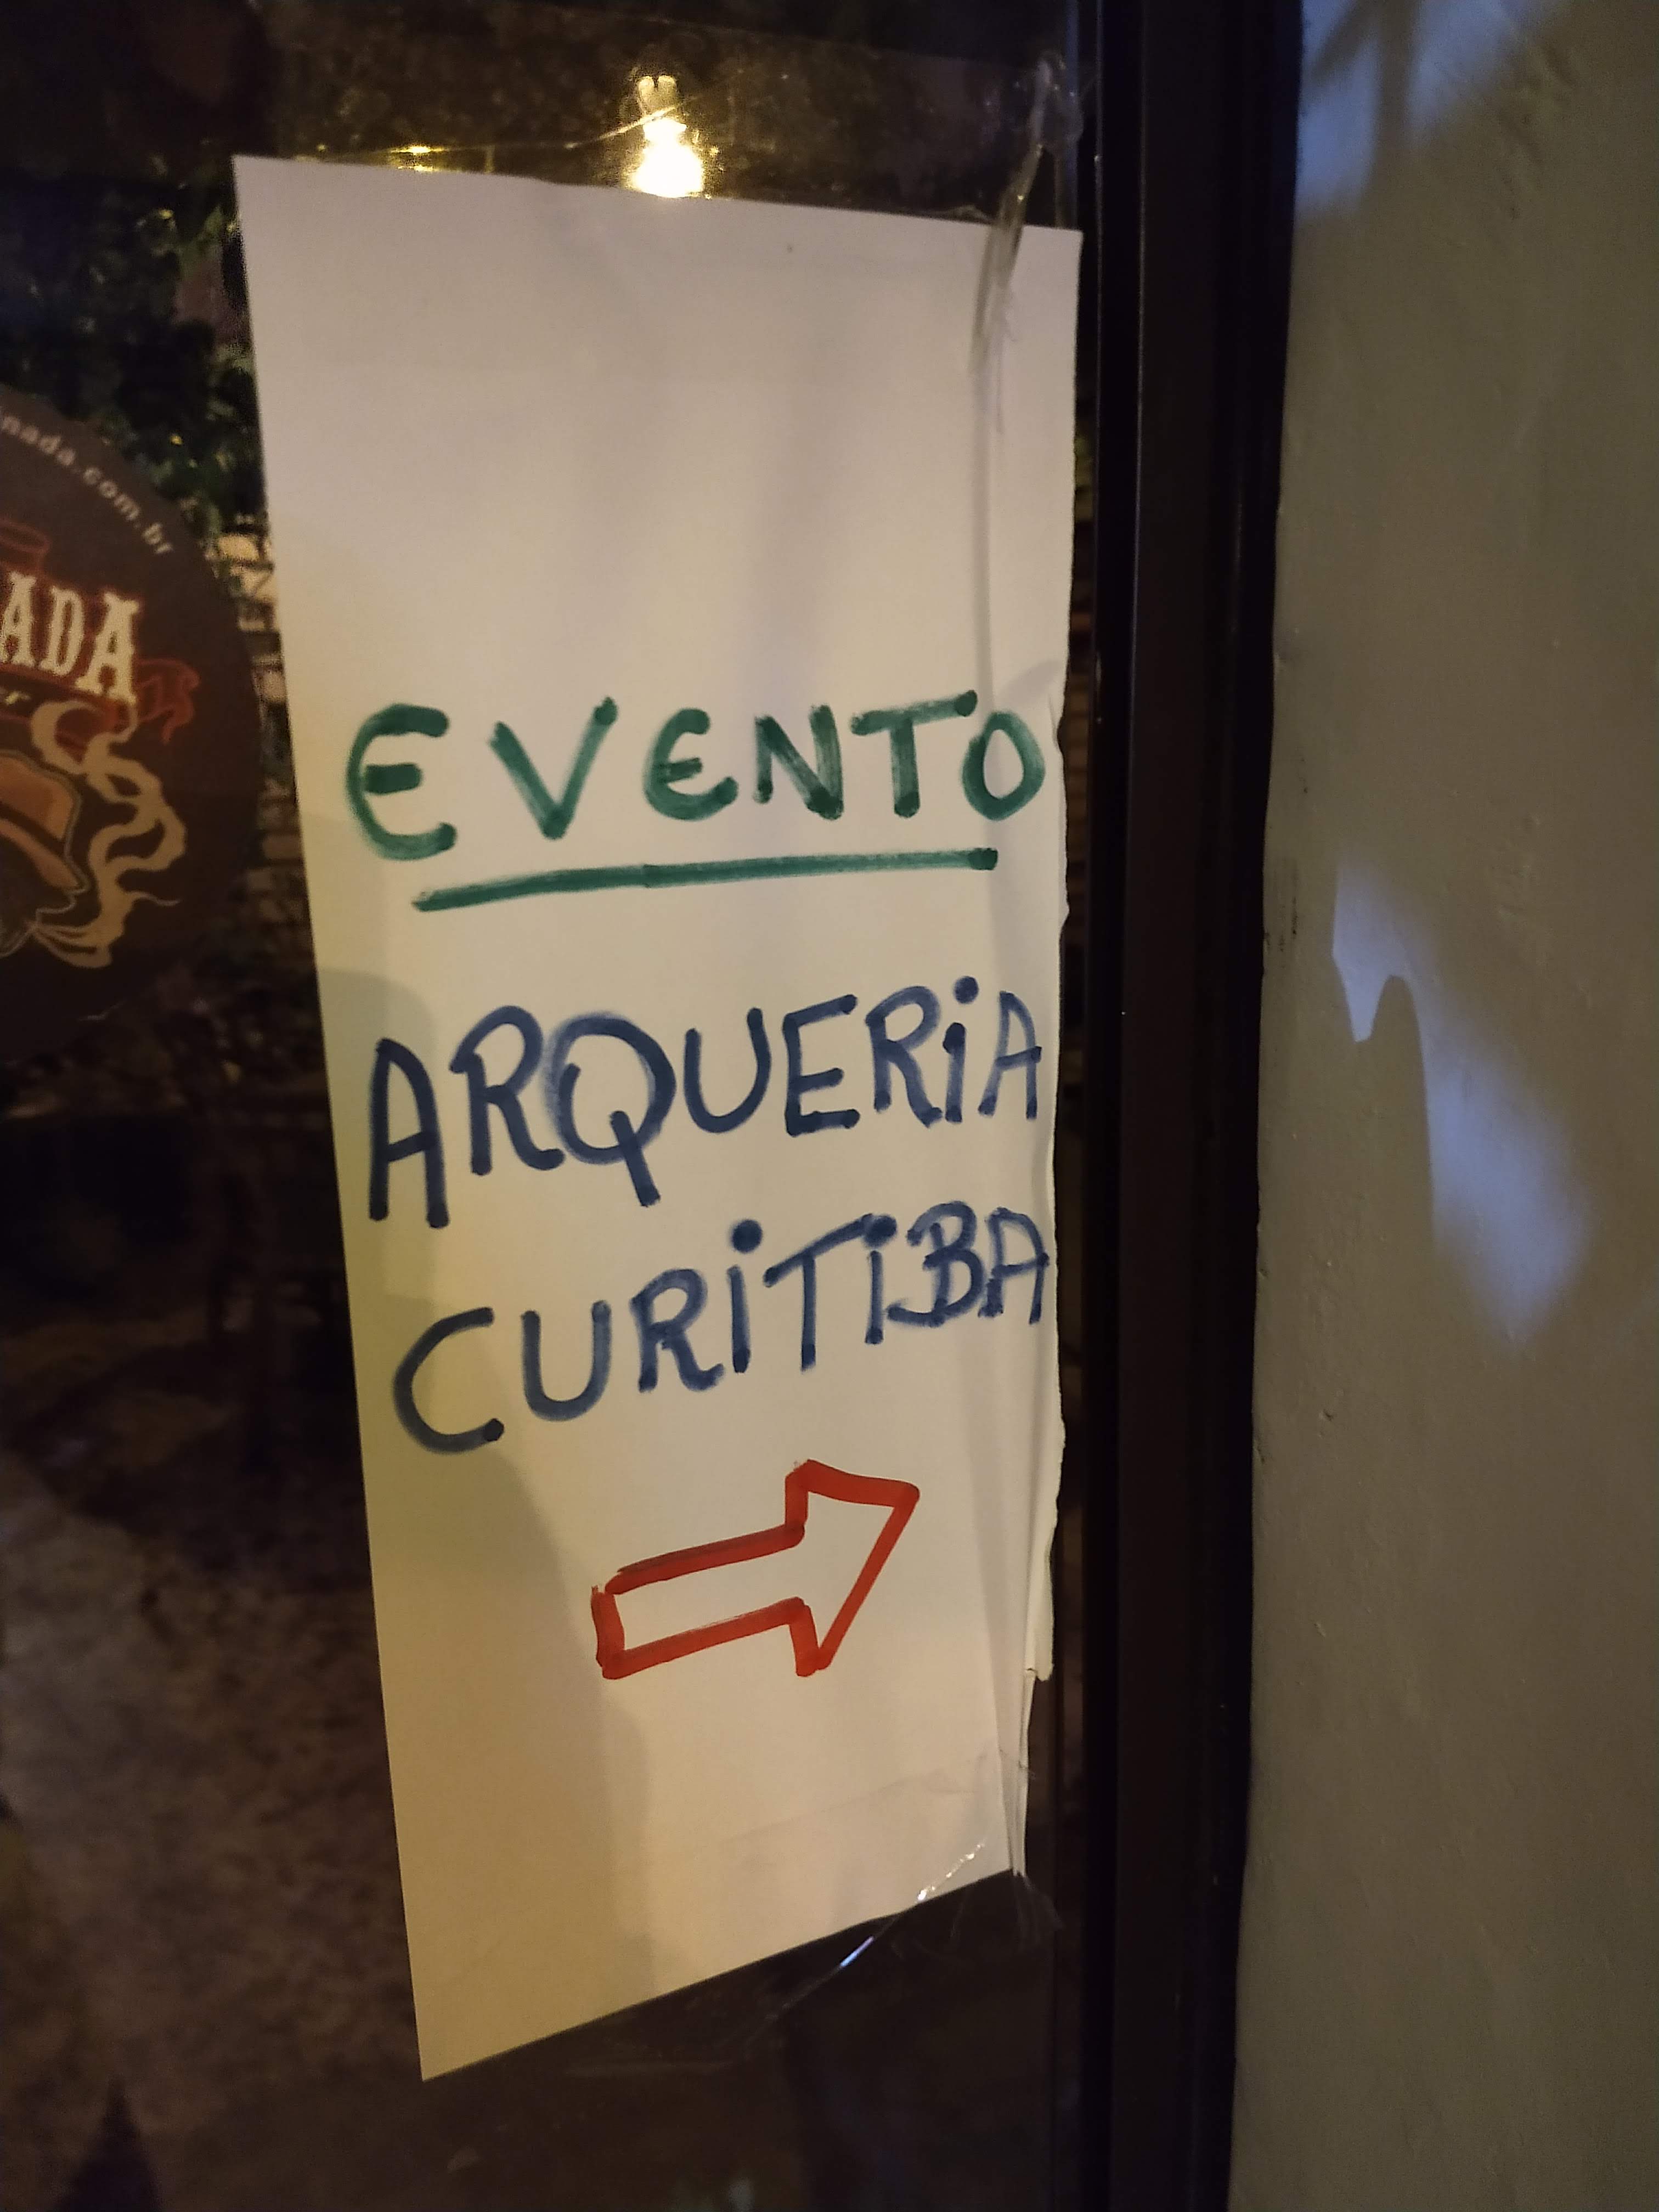 nada.com.br
ADA
er
EVENTO
ARQUERiA
CURiTiBA